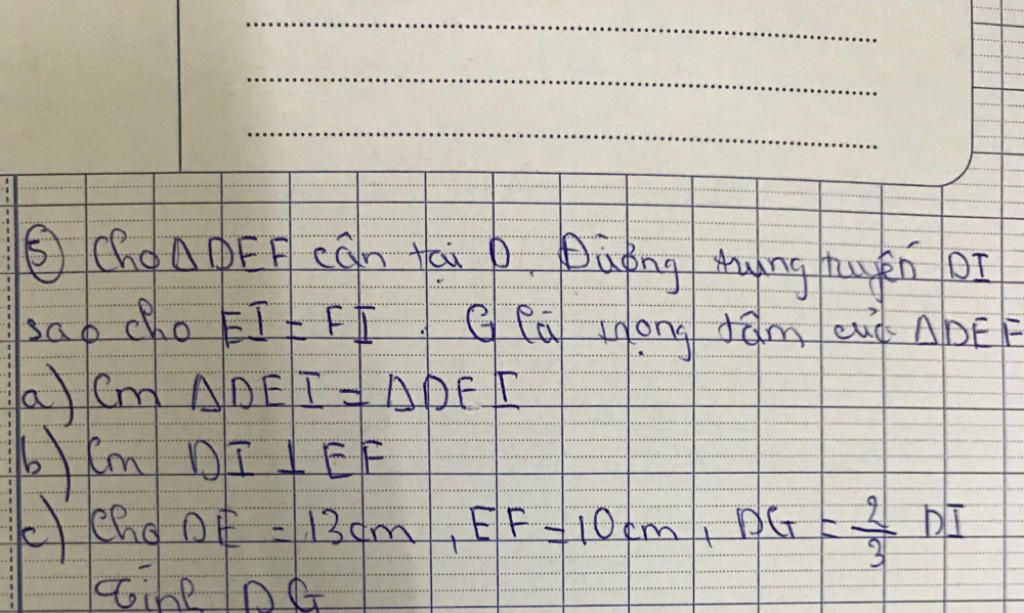 ⑤ Cho ΔDEF cân tại D. Đường trung tuyến DI
sao cho EI = FI. G là trọng tâm của ΔDEF
a) Cm ΔDEI = ΔDFI
b) Cm DI ⊥ EF
c) Cho DE = 13cm, EF = 10cm, DG = 2/3 DI
Tính DG